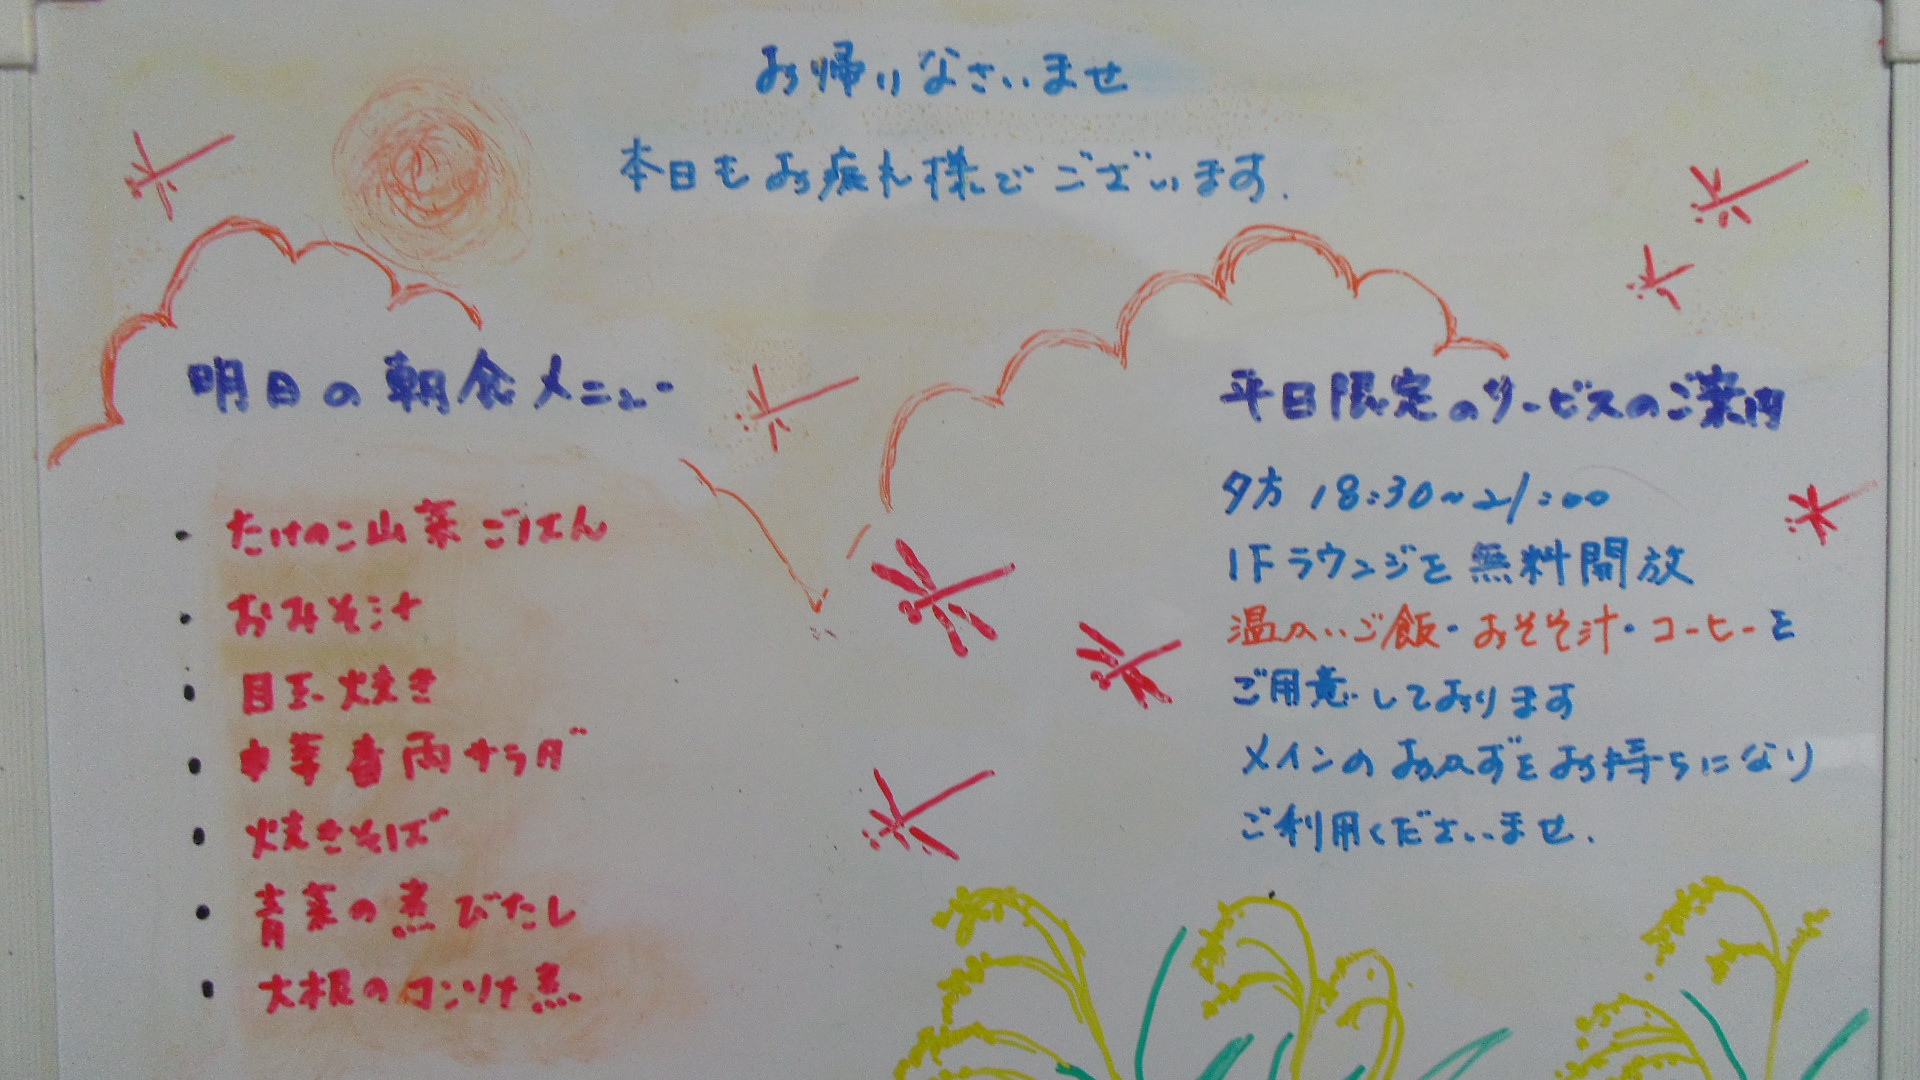 お帰りなさいませ
本日もお疲れ様でございます.
明日の朝食メニュー
・たけのこ山菜ごはん
・おみそ汁
・目玉焼き
・中華春雨サラダ
・焼きそば
・青菜の煮びたし
・大根のコンソメ煮
平日限定のサービスのご案内
夕方 18:30~21:00
1Fラウンジを無料開放
温かいご飯・おそそ汁・コーヒーを
ご用意しております
メインのおかずをお持ちになり
ご利用くださいませ.